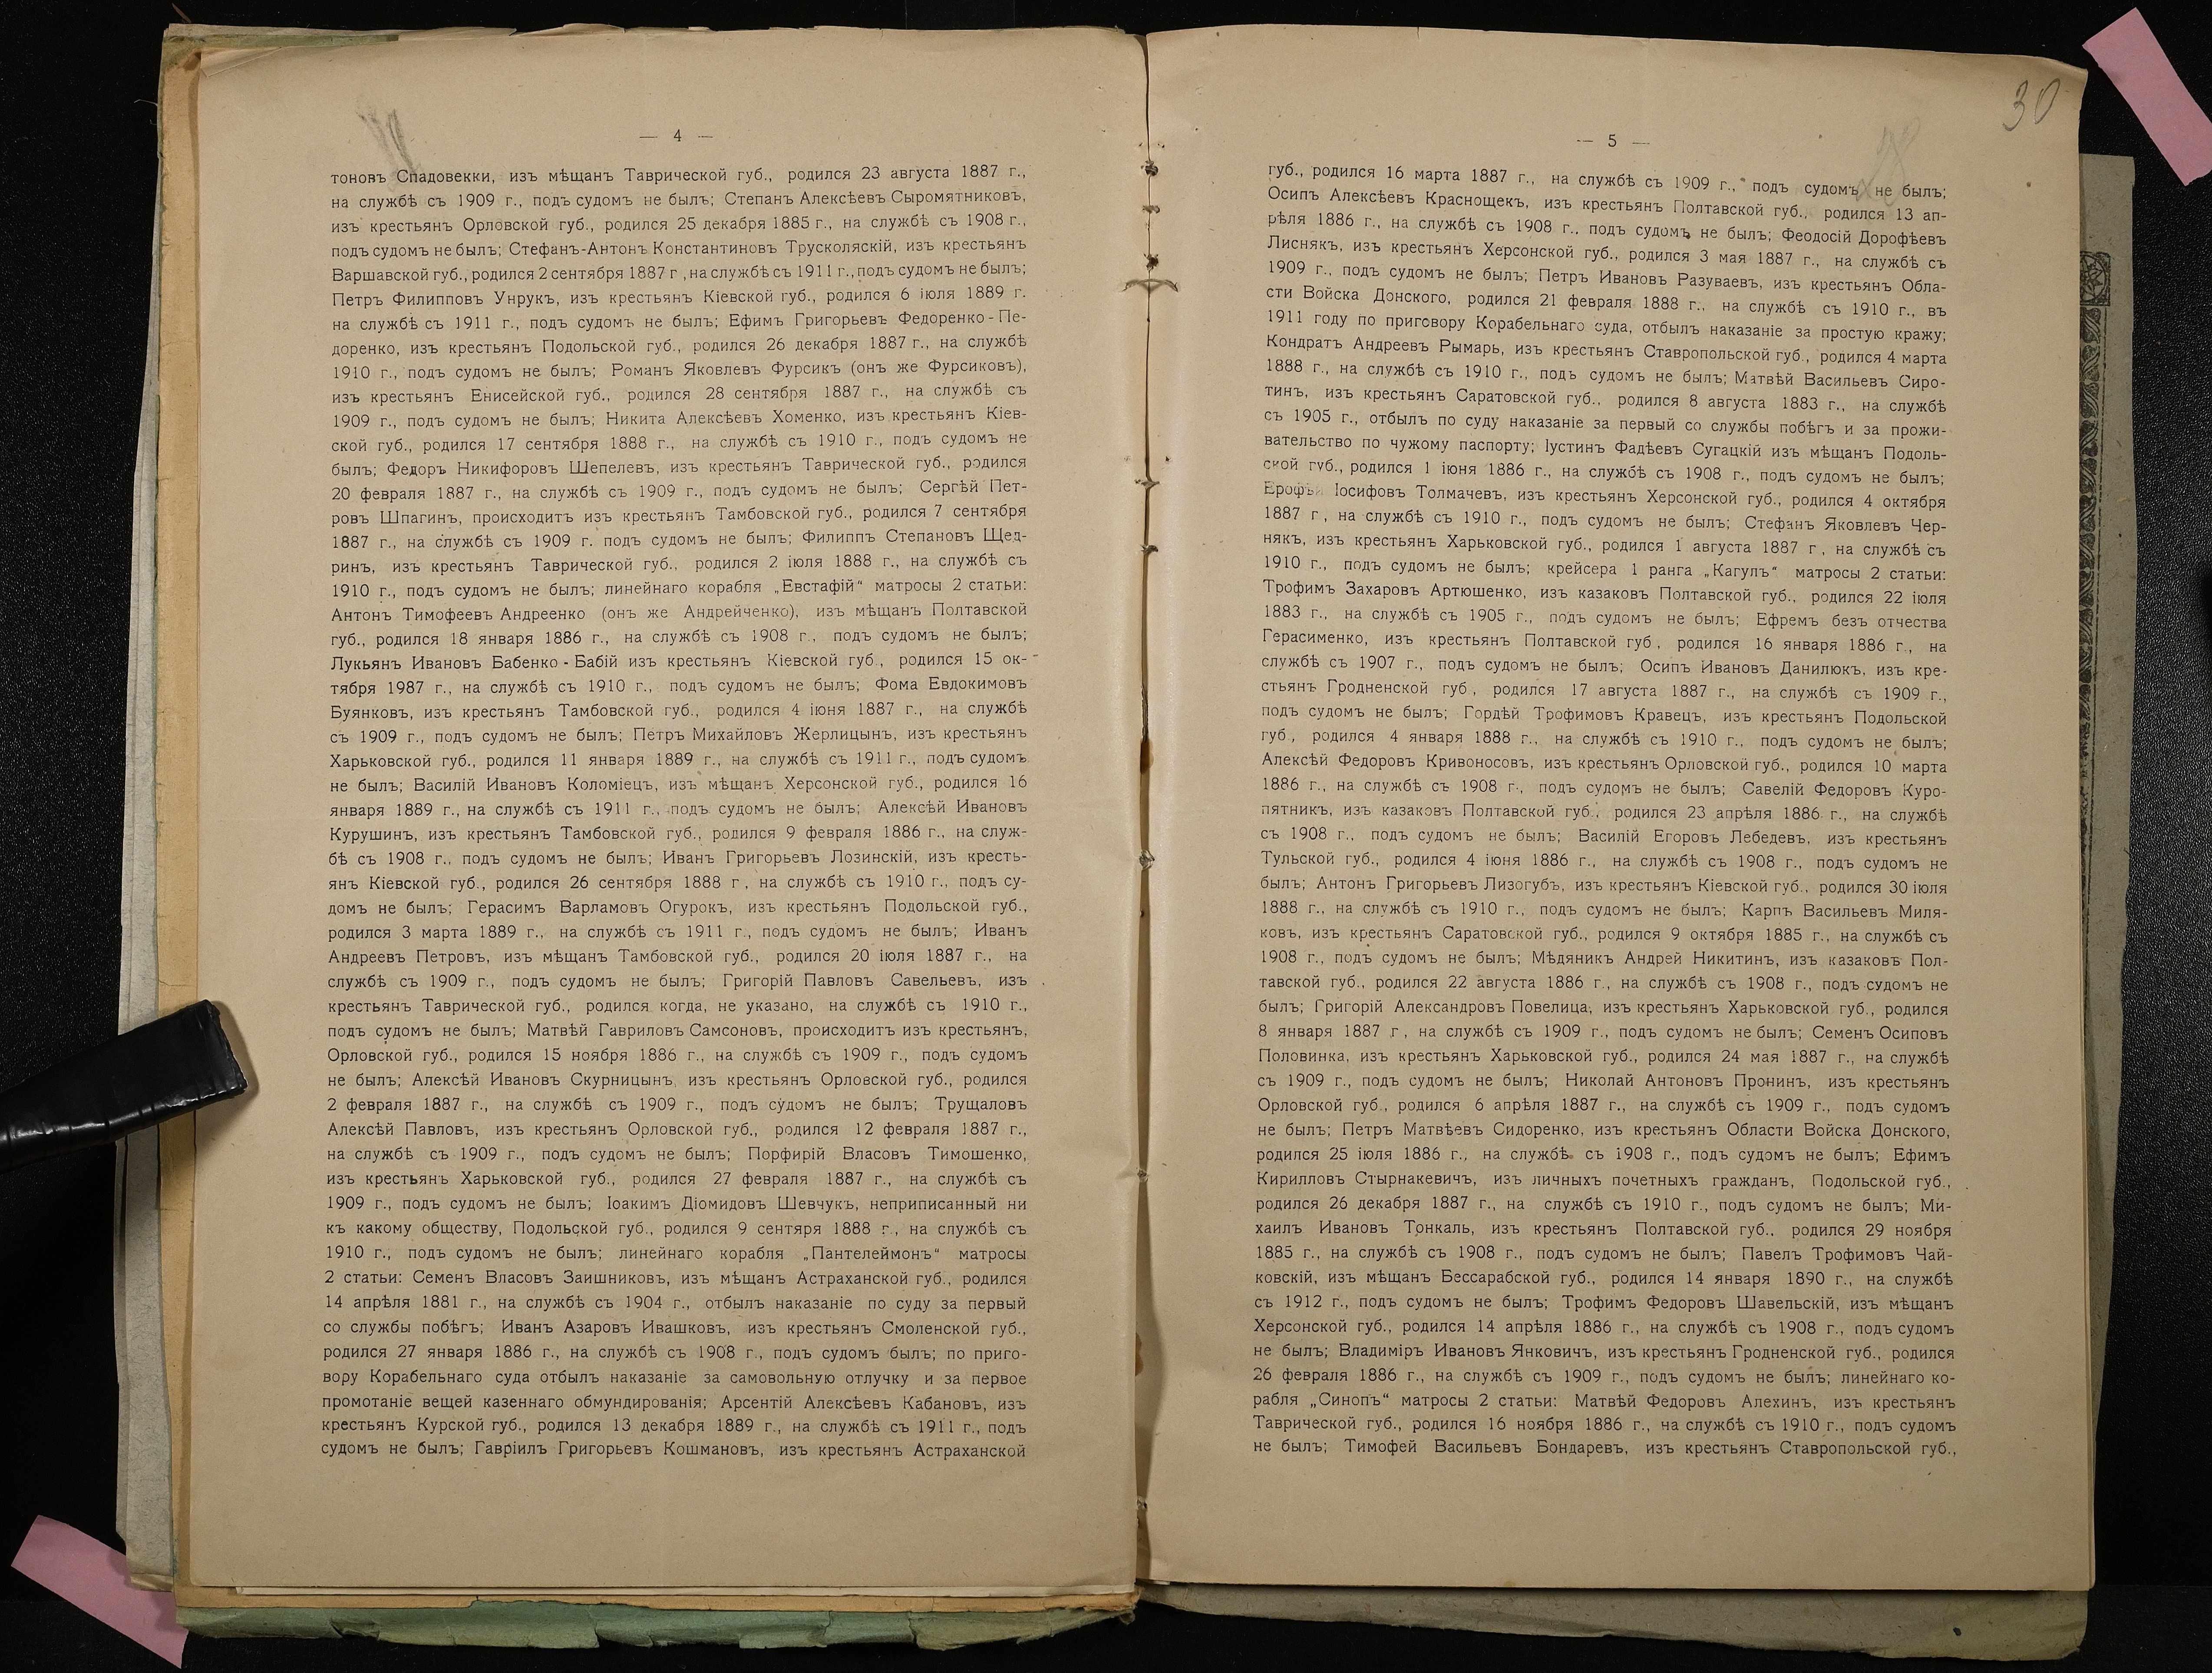 — 4 —
тоновъ Спадовекки, изъ мѣщанъ Таврической губ., родился 23 августа 1887 г.,
на службѣ съ 1909 г., подъ судомъ не былъ; Степанъ Алексѣевъ Сыромятниковъ,
изъ крестьянъ Орловской губ., родился 25 декабря 1885 г., на службѣ съ 1908 г.,
подъ судомъ не былъ; Стефанъ-Антонъ Константиновъ Трусколяскій, изъ крестьянъ
Варшавской губ., родился 2 сентября 1887 г , на службѣ съ 1911 г., подъ судомъ не былъ;
Петръ Филипповъ Унрукъ, изъ крестьянъ Кіевской губ., родился 6 іюля 1889 г.
на службѣ съ 1911 г., подъ судомъ не былъ; Ефимъ Григорьевъ Федоренко-Пе-
доренко, изъ крестьянъ Подольской губ., родился 26 декабря 1887 г., на службѣ
1910 г., подъ судомъ не былъ; Романъ Яковлевъ Фурсикъ (онъ же Фурсиковъ),
изъ крестьянъ Енисейской губ., родился 28 сентября 1887 г., на службѣ съ
1909 г., подъ судомъ не былъ; Никита Алексѣевъ Хоменко, изъ крестьянъ Кіев-
ской губ., родился 17 сентября 1888 г., на службѣ съ 1910 г., подъ судомъ не
былъ; Федоръ Никифоровъ Шепелевъ, изъ крестьянъ Таврической губ., родился
20 февраля 1887 г., на службѣ съ 1909 г., подъ судомъ не былъ; Сергѣй Пет-
ровъ Шпагинъ, происходитъ изъ крестьянъ Тамбовской губ., родился 7 сентября
1887 г., на службѣ съ 1909 г. подъ судомъ не былъ; Филиппъ Степановъ Щед-
ринъ, изъ крестьянъ Таврической губ., родился 2 іюля 1888 г., на службѣ съ
1910 г., подъ судомъ не былъ; линейнаго корабля „Евстафій“ матросы 2 статьи:
Антонъ Тимофеевъ Андреенко (онъ же Андрейченко), изъ мѣщанъ Полтавской
губ., родился 18 января 1886 г., на службѣ съ 1908 г., подъ судомъ не былъ;
Лукьянъ Ивановъ Бабенко - Бабій изъ крестьянъ Кіевской губ., родился 15 ок-
тября 1987 г., на службѣ съ 1910 г., подъ судомъ не былъ; Фома Евдокимовъ
Буянковъ, изъ крестьянъ Тамбовской губ., родился 4 іюня 1887 г., на службѣ
съ 1909 г., подъ судомъ не былъ; Петръ Михайловъ Жерлицынъ, изъ крестьянъ
Харьковской губ., родился 11 января 1889 г., на службѣ съ 1911 г., подъ судомъ
не былъ; Василій Ивановъ Коломіецъ, изъ мѣщанъ Херсонской губ., родился 16
января 1889 г., на службѣ съ 1911 г., подъ судомъ не былъ; Алексѣй Ивановъ
Курушинъ, изъ крестьянъ Тамбовской губ., родился 9 февраля 1886 г., на служ-
бѣ съ 1908 г., подъ судомъ не былъ; Иванъ Григорьевъ Лозинскій, изъ кресть-
янъ Кіевской губ., родился 26 сентября 1888 г , на службѣ съ 1910 г., подъ су-
домъ не былъ; Герасимъ Варламовъ Огурокъ, изъ крестьянъ Подольской губ.,
родился 3 марта 1889 г., на службѣ съ 1911 г., подъ судомъ не былъ; Иванъ
Андреевъ Петровъ, изъ мѣщанъ Тамбовской губ., родился 20 іюля 1887 г., на
службѣ съ 1909 г., подъ судомъ не былъ; Григорій Павловъ Савельевъ, изъ
крестьянъ Таврической губ., родился когда, не указано, на службѣ съ 1910 г.,
подъ судомъ не былъ; Матвѣй Гавриловъ Самсоновъ, происходитъ изъ крестьянъ,
Орловской губ., родился 15 ноября 1886 г., на службѣ съ 1909 г., подъ судомъ
не былъ; Алексѣй Ивановъ Скурницынъ, изъ крестьянъ Орловской губ., родился
2 февраля 1887 г., на службѣ съ 1909 г., подъ судомъ не былъ; Трущаловъ
Алексѣй Павловъ, изъ крестьянъ Орловской губ., родился 12 февраля 1887 г.,
на службѣ съ 1909 г., подъ судомъ не былъ; Порфирій Власовъ Тимошенко,
изъ крестьянъ Харьковской губ., родился 27 февраля 1887 г., на службѣ съ
1909 г., подъ судомъ не былъ; Іоакимъ Діомидовъ Шевчукъ, неприписанный ни
къ какому обществу, Подольской губ., родился 9 сентяря 1888 г., на службѣ съ
1910 г., подъ судомъ не былъ; линейнаго корабля „Пантелеймонъ“ матросы
2 статьи: Семенъ Власовъ Заишниковъ, изъ мѣщанъ Астраханской губ., родился
14 апрѣля 1881 г., на службѣ съ 1904 г., отбылъ наказаніе по суду за первый
со службы побѣгъ; Иванъ Азаровъ Ивашковъ, изъ крестьянъ Смоленской губ.,
родился 27 января 1886 г., на службѣ съ 1908 г., подъ судомъ былъ; по приго-
вору Корабельнаго суда отбылъ наказаніе за самовольную отлучку и за первое
промотаніе вещей казеннаго обмундированія; Арсентій Алексѣевъ Кабановъ, изъ
крестьянъ Курской губ., родился 13 декабря 1889 г., на службѣ съ 1911 г., подъ
судомъ не былъ; Гавріилъ Григорьевъ Кошмановъ, изъ крестьянъ Астраханской
30
— 5 —
губ., родился 16 марта 1887 г., на службѣ съ 1909 г., подъ судомъ не былъ;
Осипъ Алексѣевъ Краснощекъ, изъ крестьянъ Полтавской губ., родился 13 ап-
рѣля 1886 г., на службѣ съ 1908 г., подъ судомъ не былъ; Феодосій Дорофѣевъ
Лиснякъ, изъ крестьянъ Херсонской губ., родился 3 мая 1887 г., на службѣ съ
1909 г., подъ судомъ не былъ; Петръ Ивановъ Разуваевъ, изъ крестьянъ Обла-
сти Войска Донского, родился 21 февраля 1888 г., на службѣ съ 1910 г., въ
1911 году по приговору Корабельнаго суда, отбылъ наказаніе за простую кражу;
Кондратъ Андреевъ Рымарь, изъ крестьянъ Ставропольской губ., родился 4 марта
1888 г., на службѣ съ 1910 г., подъ судомъ не былъ; Матвѣй Васильевъ Сиро-
тинъ, изъ крестьянъ Саратовской губ., родился 8 августа 1883 г., на службѣ
съ 1905 г., отбылъ по суду наказаніе за первый со службы побѣгъ и за прожи-
вательство по чужому паспорту; Іустинъ Фадѣевъ Сугацкій изъ мѣщанъ Подоль-
ской губ., родился 1 іюня 1886 г., на службѣ съ 1908 г., подъ судомъ не былъ;
Іосифовъ Толмачевъ, изъ крестьянъ Херсонской губ., родился 4 октября
1887 г , на службѣ съ 1910 г., подъ судомъ не былъ; Стефанъ Яковлевъ Чер-
някъ, изъ крестьянъ Харьковской губ., родился 1 августа 1887 г , на службѣ съ
1910 г., подъ судомъ не былъ; крейсера 1 ранга „Кагулъ“ матросы 2 статьи:
Трофимъ Захаровъ Артюшенко, изъ казаковъ Полтавской губ., родился 22 іюля
1883 г., на службѣ съ 1905 г., подъ судомъ не былъ; Ефремъ безъ отчества
Герасименко, изъ крестьянъ Полтавской губ , родился 16 января 1886 г., на
службѣ съ 1907 г., подъ судомъ не былъ; Осипъ Ивановъ Данилюкъ, изъ кре-
стьянъ Гродненской губ , родился 17 августа 1887 г., на службѣ съ 1909 г.,
подъ судомъ не былъ; Гордѣй Трофимовъ Кравецъ, изъ крестьянъ Подольской
губ , родился 4 января 1888 г., на службѣ съ 1910 г., подъ судомъ не былъ;
Алексѣй Федоровъ Кривоносовъ, изъ крестьянъ Орловской губ., родился 10 марта
1886 г., на службѣ съ 1908 г., подъ судомъ не былъ; Савелій Федоровъ Куро-
пятникъ, изъ казаковъ Полтавской губ., родился 23 апрѣля 1886 г., на службѣ
съ 1908 г., подъ судомъ не былъ; Василій Егоровъ Лебедевъ, изъ крестьянъ
Тульской губ., родился 4 іюня 1886 г., на службѣ съ 1908 г., подъ судомъ не
былъ; Антонъ Григорьевъ Лизогубъ, изъ крестьянъ Кіевской губ., родился 30 іюля
1888 г., на службѣ съ 1910 г., подъ судомъ не былъ; Карпъ Васильевъ Миля-
ковъ, изъ крестьянъ Саратовской губ., родился 9 октября 1885 г., на службѣ съ
1908 г., подъ судомъ не былъ; Мѣдяникъ Андрей Никитинъ, изъ казаковъ Пол-
тавской губ., родился 22 августа 1886 г., на службѣ съ 1908 г., подъ судомъ не
былъ; Григорій Александровъ Повелица, изъ крестьянъ Харьковской губ., родился
8 января 1887 г , на службѣ съ 1909 г., подъ судомъ не былъ; Семенъ Осиповъ
Половинка, изъ крестьянъ Харьковской губ., родился 24 мая 1887 г., на службѣ
съ 1909 г., подъ судомъ не былъ; Николай Антоновъ Пронинъ, изъ крестьянъ
Орловской губ., родился 6 апрѣля 1887 г., на службѣ съ 1909 г., подъ судомъ
не былъ; Петръ Матвѣевъ Сидоренко, изъ крестьянъ Области Войска Донского,
родился 25 іюля 1886 г., на службѣ съ 1908 г., подъ судомъ не былъ; Ефимъ
Кирилловъ Стырнакевичъ, изъ личныхъ почетныхъ гражданъ, Подольской губ.,
родился 26 декабря 1887 г., на службѣ съ 1910 г., подъ судомъ не былъ; Ми-
хаилъ Ивановъ Тонкаль, изъ крестьянъ Полтавской губ., родился 29 ноября
1885 г., на службѣ съ 1908 г., подъ судомъ не былъ; Павелъ Трофимовъ Чай-
ковскій, изъ мѣщанъ Бессарабской губ., родился 14 января 1890 г., на службѣ
съ 1912 г., подъ судомъ не былъ; Трофимъ Федоровъ Шавельскій, изъ мѣщанъ
Херсонской губ., родился 14 апрѣля 1886 г., на службѣ съ 1908 г., подъ судомъ
не былъ; Владиміръ Ивановъ Янковичъ, изъ крестьянъ Гродненской губ., родился
26 февраля 1886 г., на службѣ съ 1909 г., подъ судомъ не былъ; линейнаго ко-
рабля „Синопъ“ матросы 2 статьи: Матвѣй Федоровъ Алехинъ, изъ крестьянъ
Таврической губ., родился 16 ноября 1886 г., на службѣ съ 1910 г., подъ судомъ
не былъ; Тимофей Васильевъ Бондаревъ, изъ крестьянъ Ставропольской губ.,